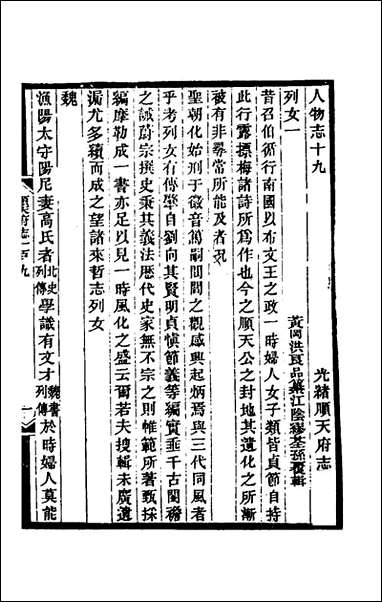 人物志十九
光緒順天府志
列女一
黃岡洪良品纂江陰繆荃孫覆輯
昔召伯循行南國以布文王之政一時婦人女子類皆貞節自持
此行露摽梅諸詩所爲作也今之順天公之封地其遺化之所漸
被有非尋常所能及者況
聖朝化始刑于徽音篤嗣閭閻之觀感興起炳焉與三代同風者
乎考列女有傳肇自劉向其賢明貞愼節義等編實垂千古閨襜
之誡蔚宗撰史秉其義法歷代史家無不宗之則帷範所著甄採
編摩勒成一書亦足以見一時風化之盛云爾若夫搜輯未廣遺
漏尤多續而成之望諸來哲志列女
魏
漁陽太守陽尼妻高氏者北史列傳學識有文才魏書列傳於時婦人莫能
順天府志一百九
一